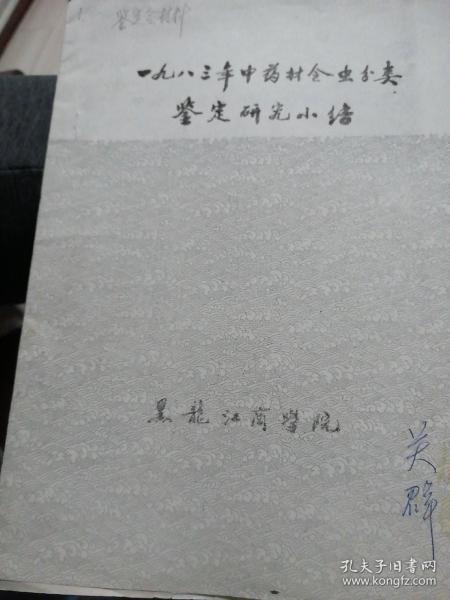 鉴定会材料
一九八三年中药材仓虫分类
鉴定研究小结
黑龍江商学院
关群
孔夫子旧书网
www.kongfz.com